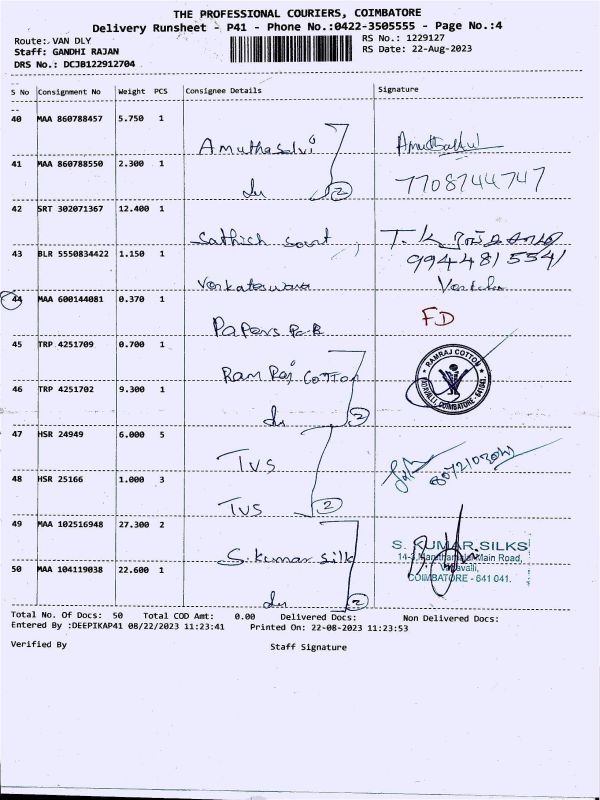 THE PROFESSIONAL COURIERS, COIMBATORE
Delivery Runsheet - P41 - Phone No.:0422-3505555 - Page No.:4
Route: VAN DLY
RS No.: 1229127
Staff: GANDHI RAJAN
RS Date: 22-Aug-2023
DRS No.: DCJB122912704
S No Consignment No Weight PCS Consignee Details Signature
40 MAA 860788457 5.750 1
Amuthaselvi
41 MAA 860788550 2.300 1
7708744747
2
42 SRT 302071367 12.400 1
Sathich
43 BLR 5550834422 1.150 1
9944815541
Venkateswara
44 MAA 600144081 0.370 1
Papers Park FD
45 TRP 4251709 0.700 1
Ram Raj Cotton
RAMRAJ COTTON
COIMBATORE - 641 041.
46 TRP 4251702 9.300 1
2
47 HSR 24949 6.000 5
TVS
48 HSR 25166 1.000 3
TVS 2
49 MAA 102516948 27.300 2
S. kumar Silk
S. KUMAR SILKS
Main Road,
COIMBATORE - 641 041.
50 MAA 104119038 22.600 1
2
Total No. Of Docs: 50 Total COD Amt: 0.00 Delivered Docs: Non Delivered Docs:
Entered By :DEEPIKAP41 08/22/2023 11:23:41 Printed On: 22-08-2023 11:23:53
Verified By
Staff Signature